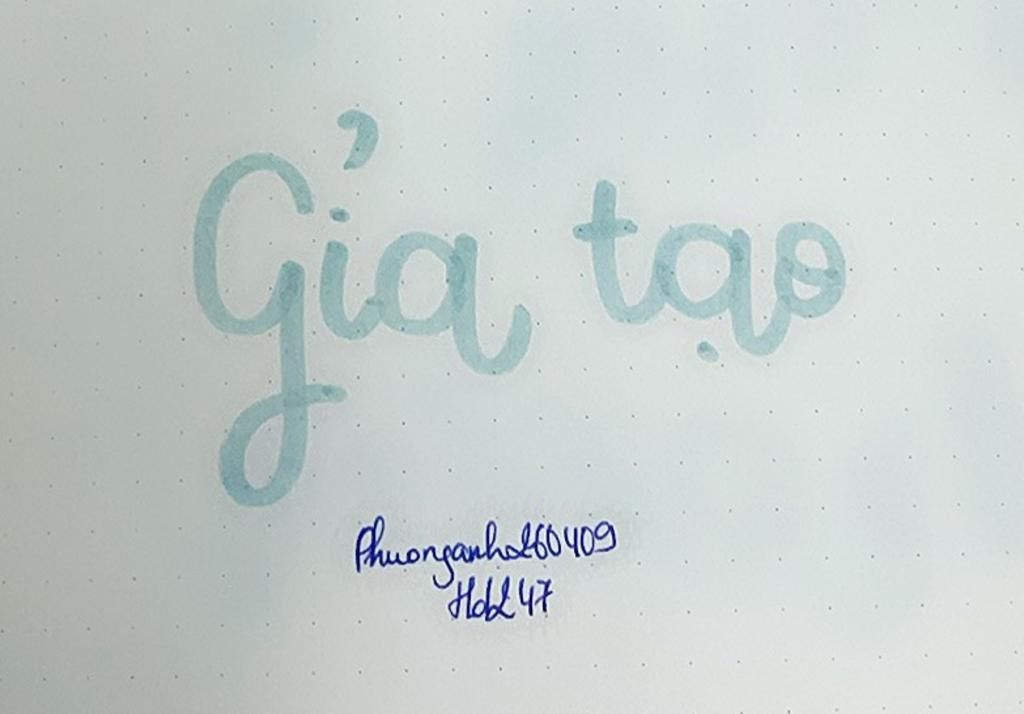 Giả tạo
Phuonganh260409
Hdl247